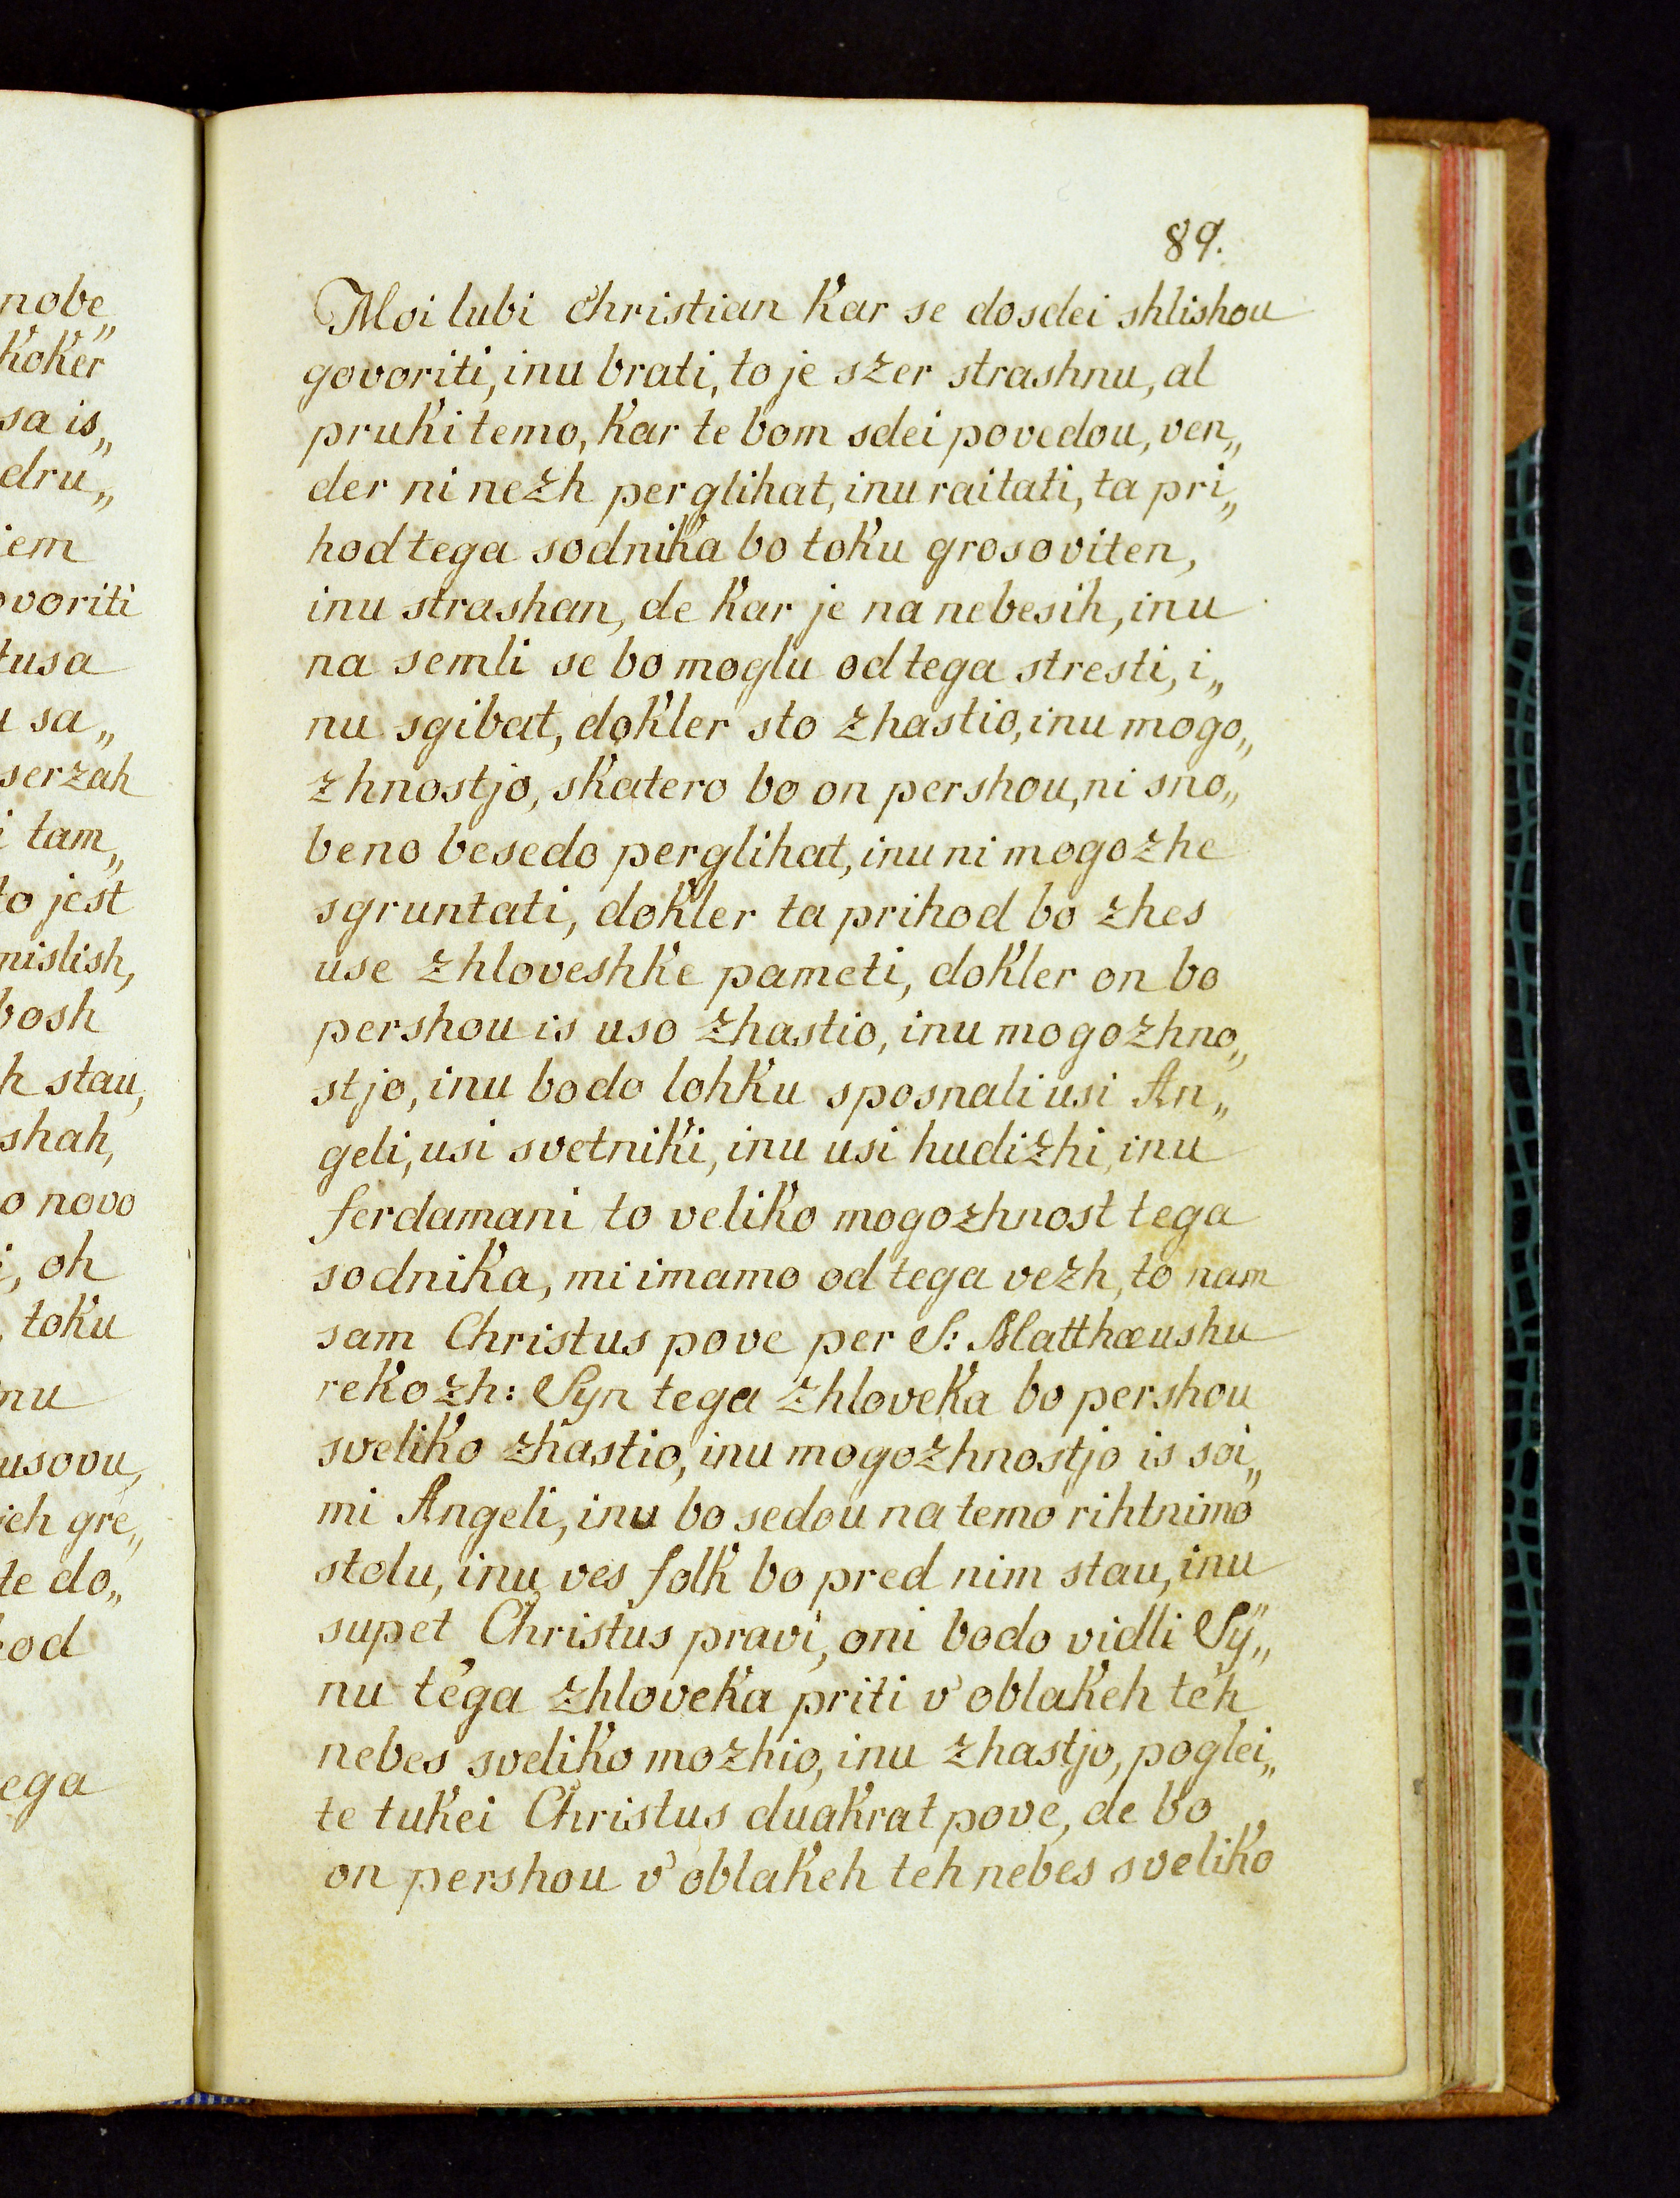 nobe„
koker
sa is„
dru„
iem
ovoriti
tusa
u sa„
serzah
i tam„
to jest
mislish,
bosh
h stau,
shah,
o novo
i, oh
, toku
nu
usovu,
ieh gre„
te do„
od
ega
89.
Moi lubi Christian kar se dosdei shlishou
govoriti, inu brati, to je szer strashnu, al
pruki temo, kar te bom sdei povedou, ven„
der ni nezh perglihat, inu raitati, ta pri„
hod tega sodnika bo toku grosoviten,
inu strashan, de kar je na nebesih, inu
na semli se bo moglu od tega stresti, i„
nu sgibat, dokler sto zhastio, inu mogo„
zhnostjo, skatero bo on pershou, ni sno„
beno besedo perglihat, inu ni mogozhe
sgruntati, dokler ta prihod bo zhes
use zhloveshke pameti, dokler on bo
pershou is uso zhastio, inu mogozhno„
stjo, inu bodo lohku sposnali usi An„
geli, usi svetniki, inu usi hudizhi, inu
ferdamani to veliko mogozhnost tega
sodnika, mi imamo od tega vezh, to nam
sam Christus pove per S: Matthæushu
rekozh: Syn tega zhloveka bo pershou
sveliko zhastio, inu mogozhnostjo is soi„
mi Angeli, inu bo sedou na temo rihtnimo
stolu, inu ves folk bo pred nim stau, inu
supet Christus pravi, oni bodo vidli Sÿ„
nu tega zhloveka priti v' oblakeh teh
nebes sveliko mozhio, inu zhastjo, poglei„
te tukei Christus duakrat pove, de bo
on pershou v' oblakeh teh nebes sveliko